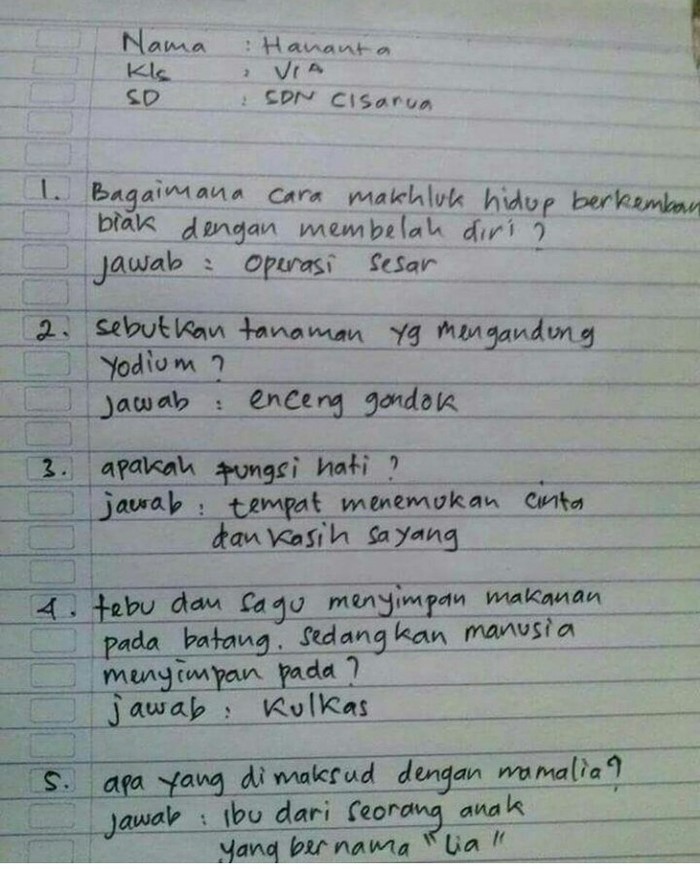 Nama : Hananta
Kls : VI A
SD : SDN Cisarua
1. Bagaimana cara makhluk hidup berkemban
biak dengan membelah diri ?
jawab : operasi sesar
2. sebutkan tanaman yg mengandung
yodium ?
jawab : enceng gondok
3. apakah fungsi hati ?
jawab : tempat menemukan cinta
dan kasih sayang
4. tebu dan sagu menyimpan makanan
pada batang. sedangkan manusia
menyimpan pada ?
jawab : kulkas
5. apa yang di maksud dengan mamalia ?
jawab : ibu dari seorang anak
yang bernama "Lia"